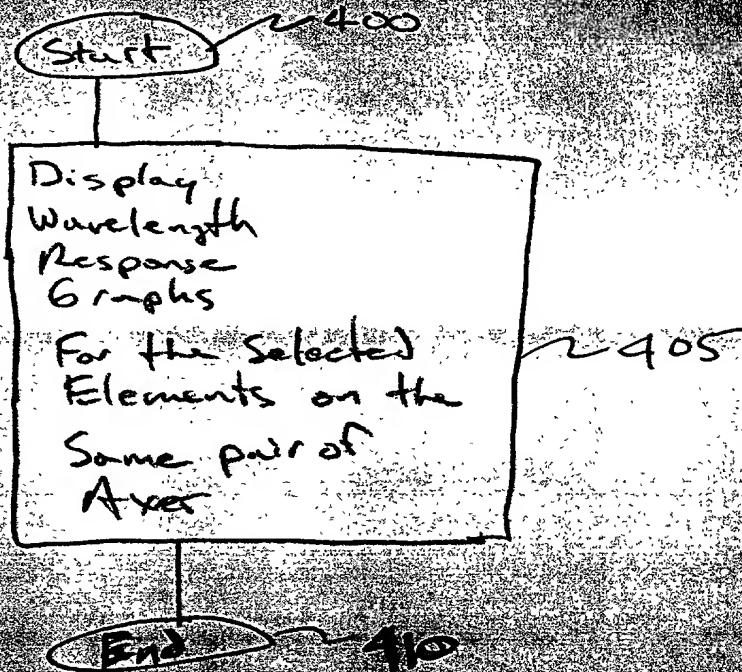 Start 400
Display
Wavelength
Response
Graphs
For the Selected
Elements on the
405
Same pair of
Axes
End 410